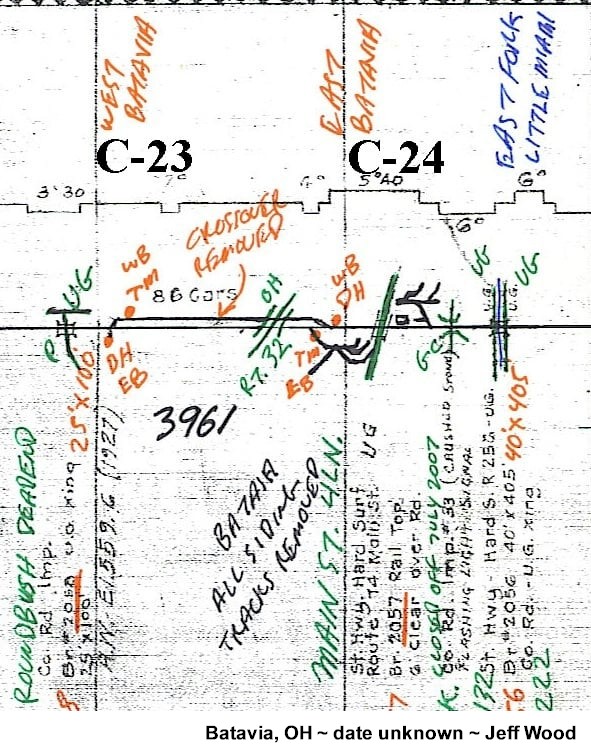 WEST
BATAVIA
EAST
BATAVIA
EAST FORK
LITTLE MIAMI
C-23
C-24
3°30
7°
4°
5°40
6°
6°
CROSSOVER
REMOVED
WB
TM
86 Cars
OH
WB
DH
UG
UG
UG
P
DH
EB
RT. 32
TM
EB
GC
3961
BATAVIA
ALL SIDING
TRACKS REMOVED
ROUNDBUSH DEADEND
Co. Rd. Imp.
Br # 2058 U.G. Xing
25'X100'
25'X100'
MAIN ST. 4LN.
UG
St. Hwy. Hard Surf
Route 74
Br. 2057 Rail Top
Clear over Rd.
CLOSED OFF JULY 2007
Co Rd. Imp. #33 (CRUSHED STONE)
FLASHING LIGHT SIGNAL
132
St. Hwy - Hard S. R 258 - UG.
Br # 2056 40'x405'
40'X405
Co. Rd. - U.G. Xing
222
Batavia, OH ~ date unknown ~ Jeff Wood